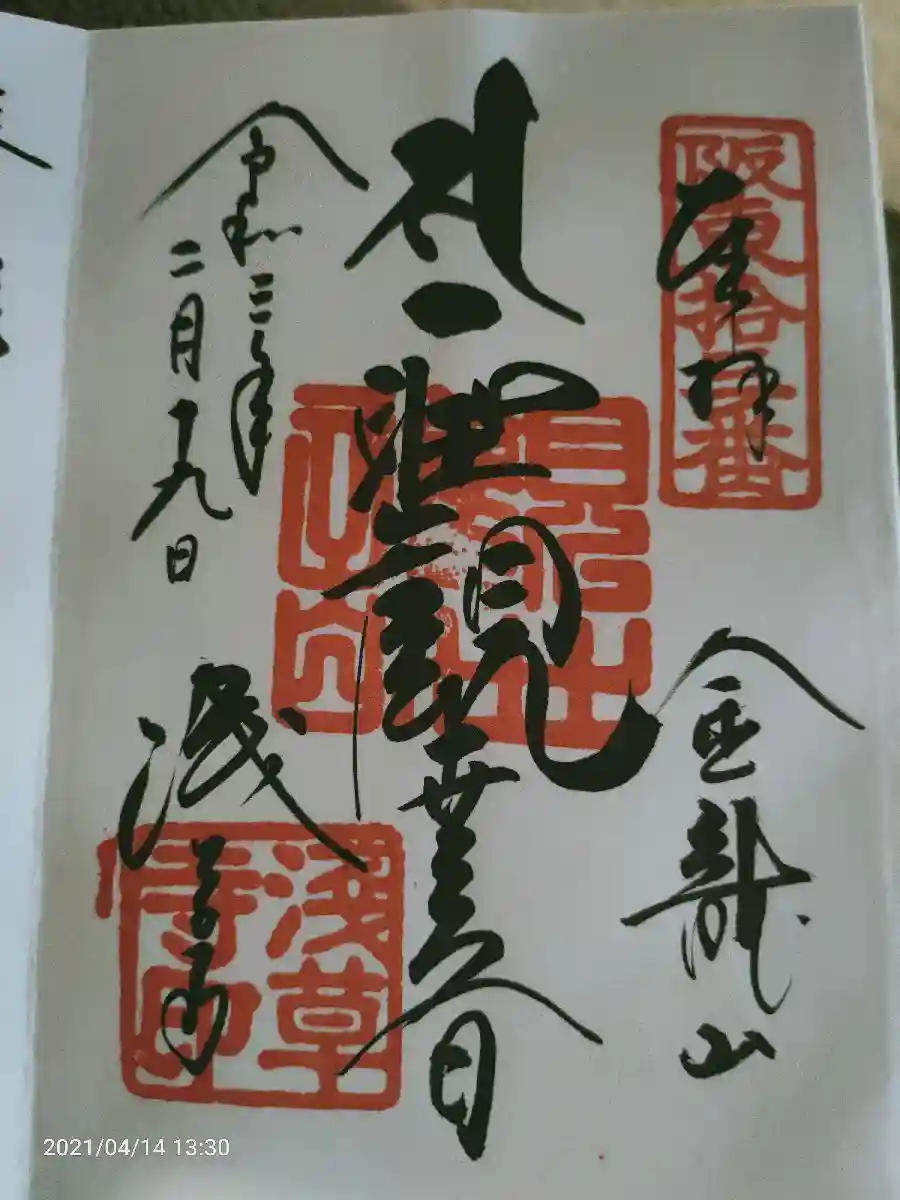 阪東拾三番
奉拝
金龍山
聖觀世音
令和三年
二月十九日
浅草寺
淺草
寺印
2021/04/14 13:30